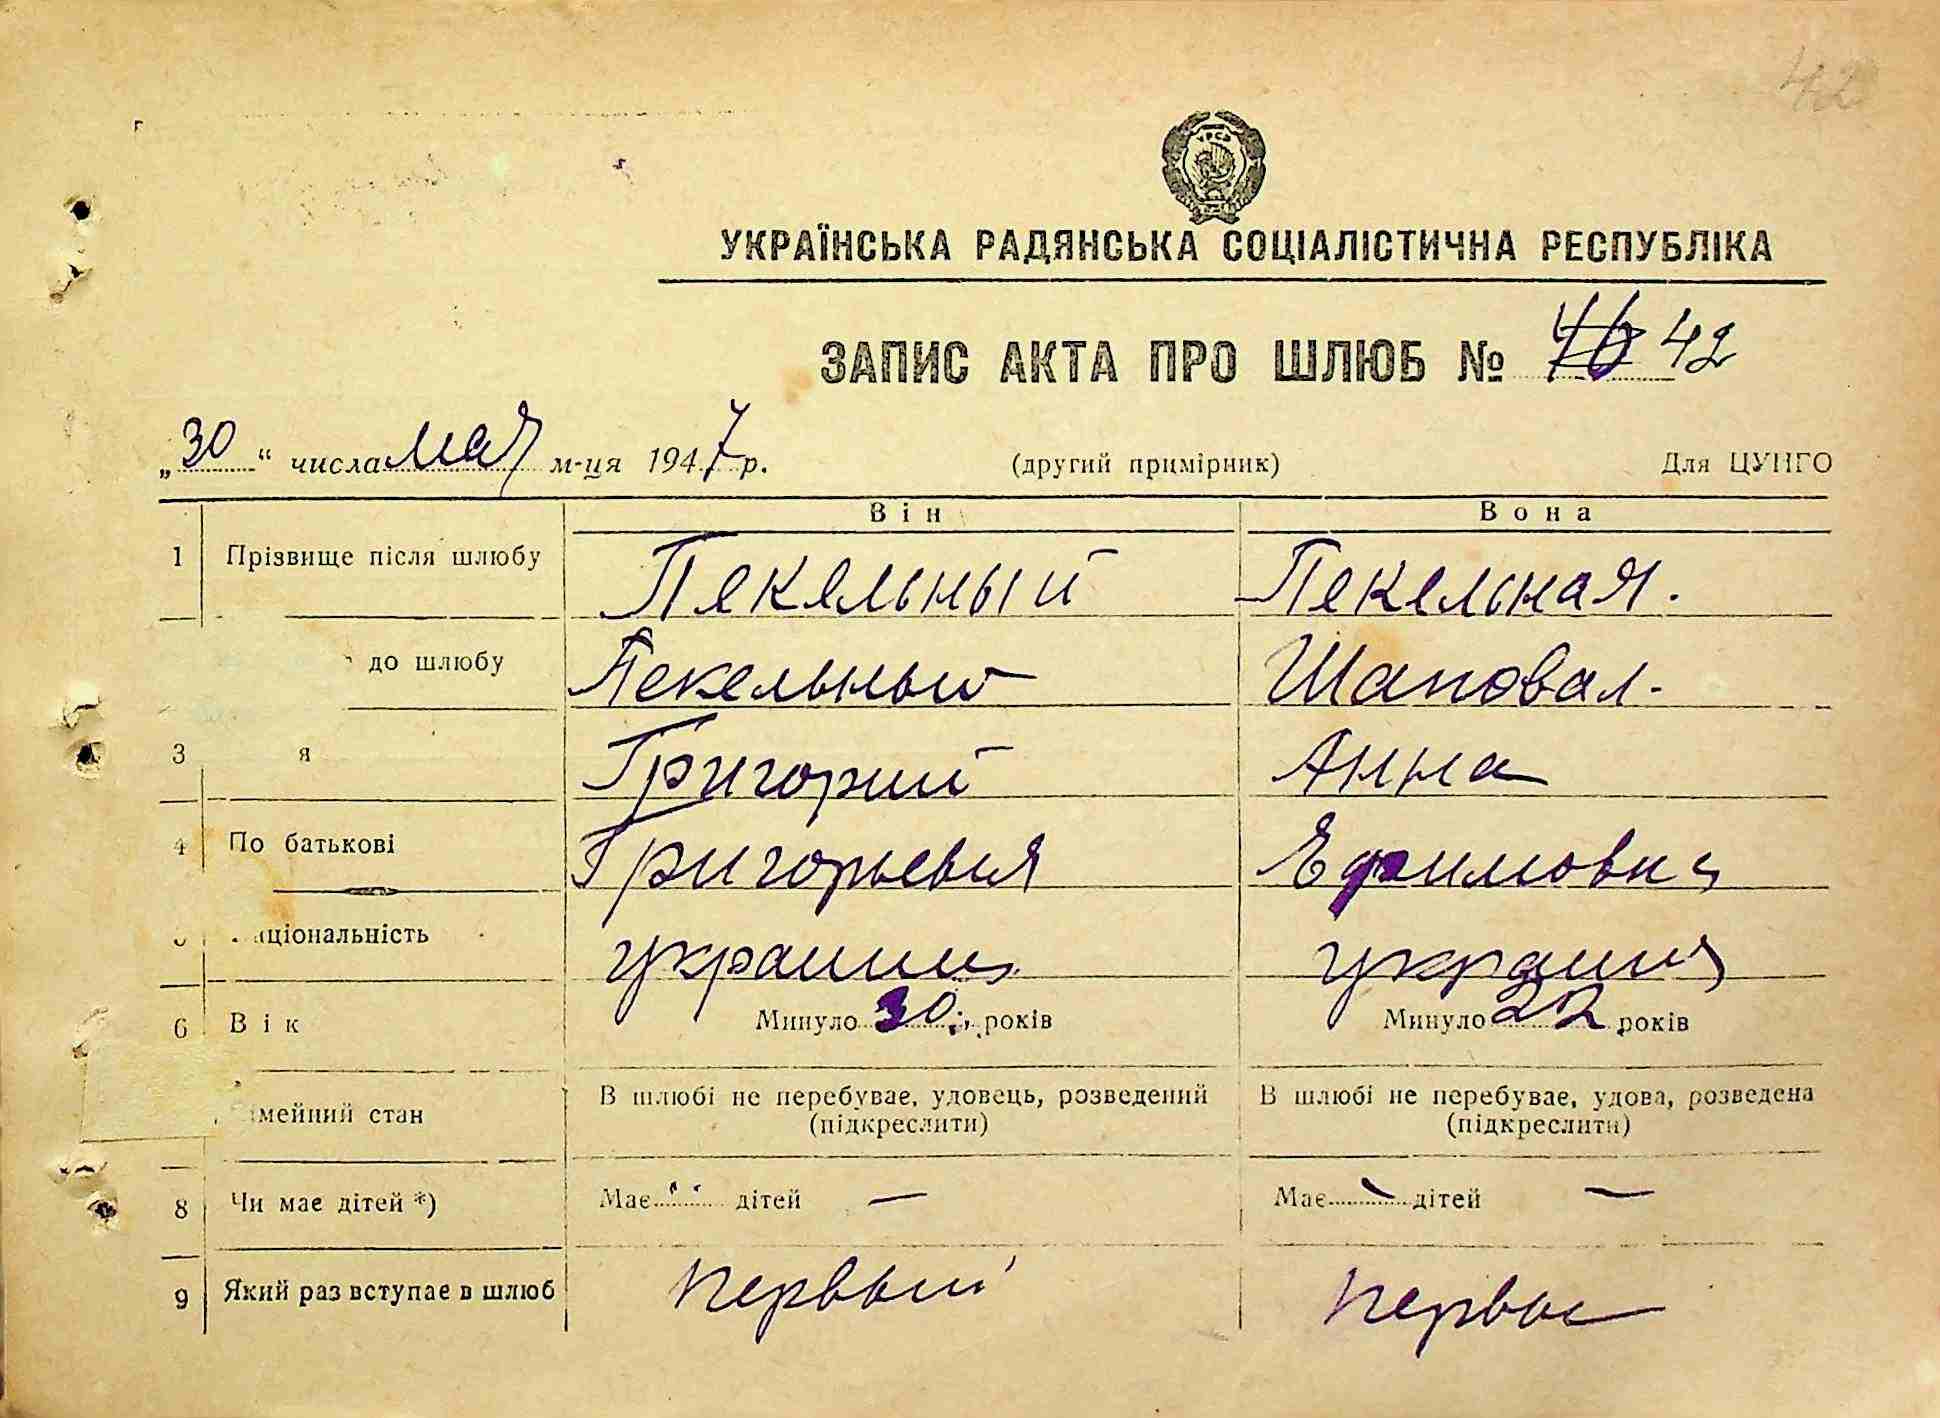 42
УРСР
УКРАЇНСЬКА РАДЯНСЬКА СОЦІАЛІСТИЧНА РЕСПУБЛІКА
ЗАПИС АКТА ПРО ШЛЮБ № 46 42
„30“ числа мая м-ця 1947 р. (другий примірник) Для ЦУНГО
Він Вона
1 Прізвище після шлюбу Пекельный Пекельная.
до шлюбу Пекельный Шаповал.
3 я Григорий Анна
4 По батькові Григорьевич Ефимовна
аціональність украинец украинка
6 Вік Минуло 30 років Минуло 22 років
В шлюбі не перебуває, удовець, розведений В шлюбі не перебуває, удова, розведена
імейний стан (підкреслити) (підкреслити)
8 Чи має дітей *) Має дітей — Має — дітей —
9 Який раз вступає в шлюб первый первый